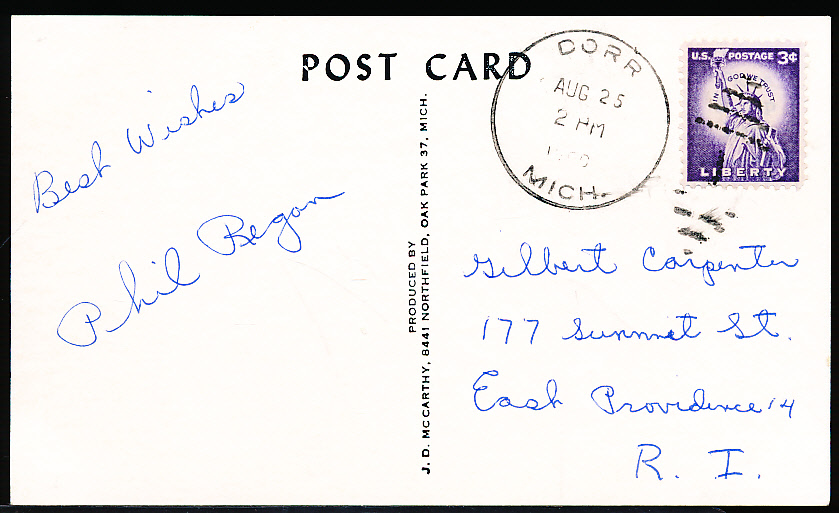 POST CARD
Best Wishes
Phil Regan
PRODUCED BY
J. D. MCCARTHY, 8441 NORTHFIELD, OAK PARK 37, MICH.
DORR
AUG 25
2 PM
MICH.
U.S. POSTAGE 3¢
IN GOD WE TRUST
LIBERTY
Gilbert Carpenter
177 Summit St.
East Providence 14
R. I.